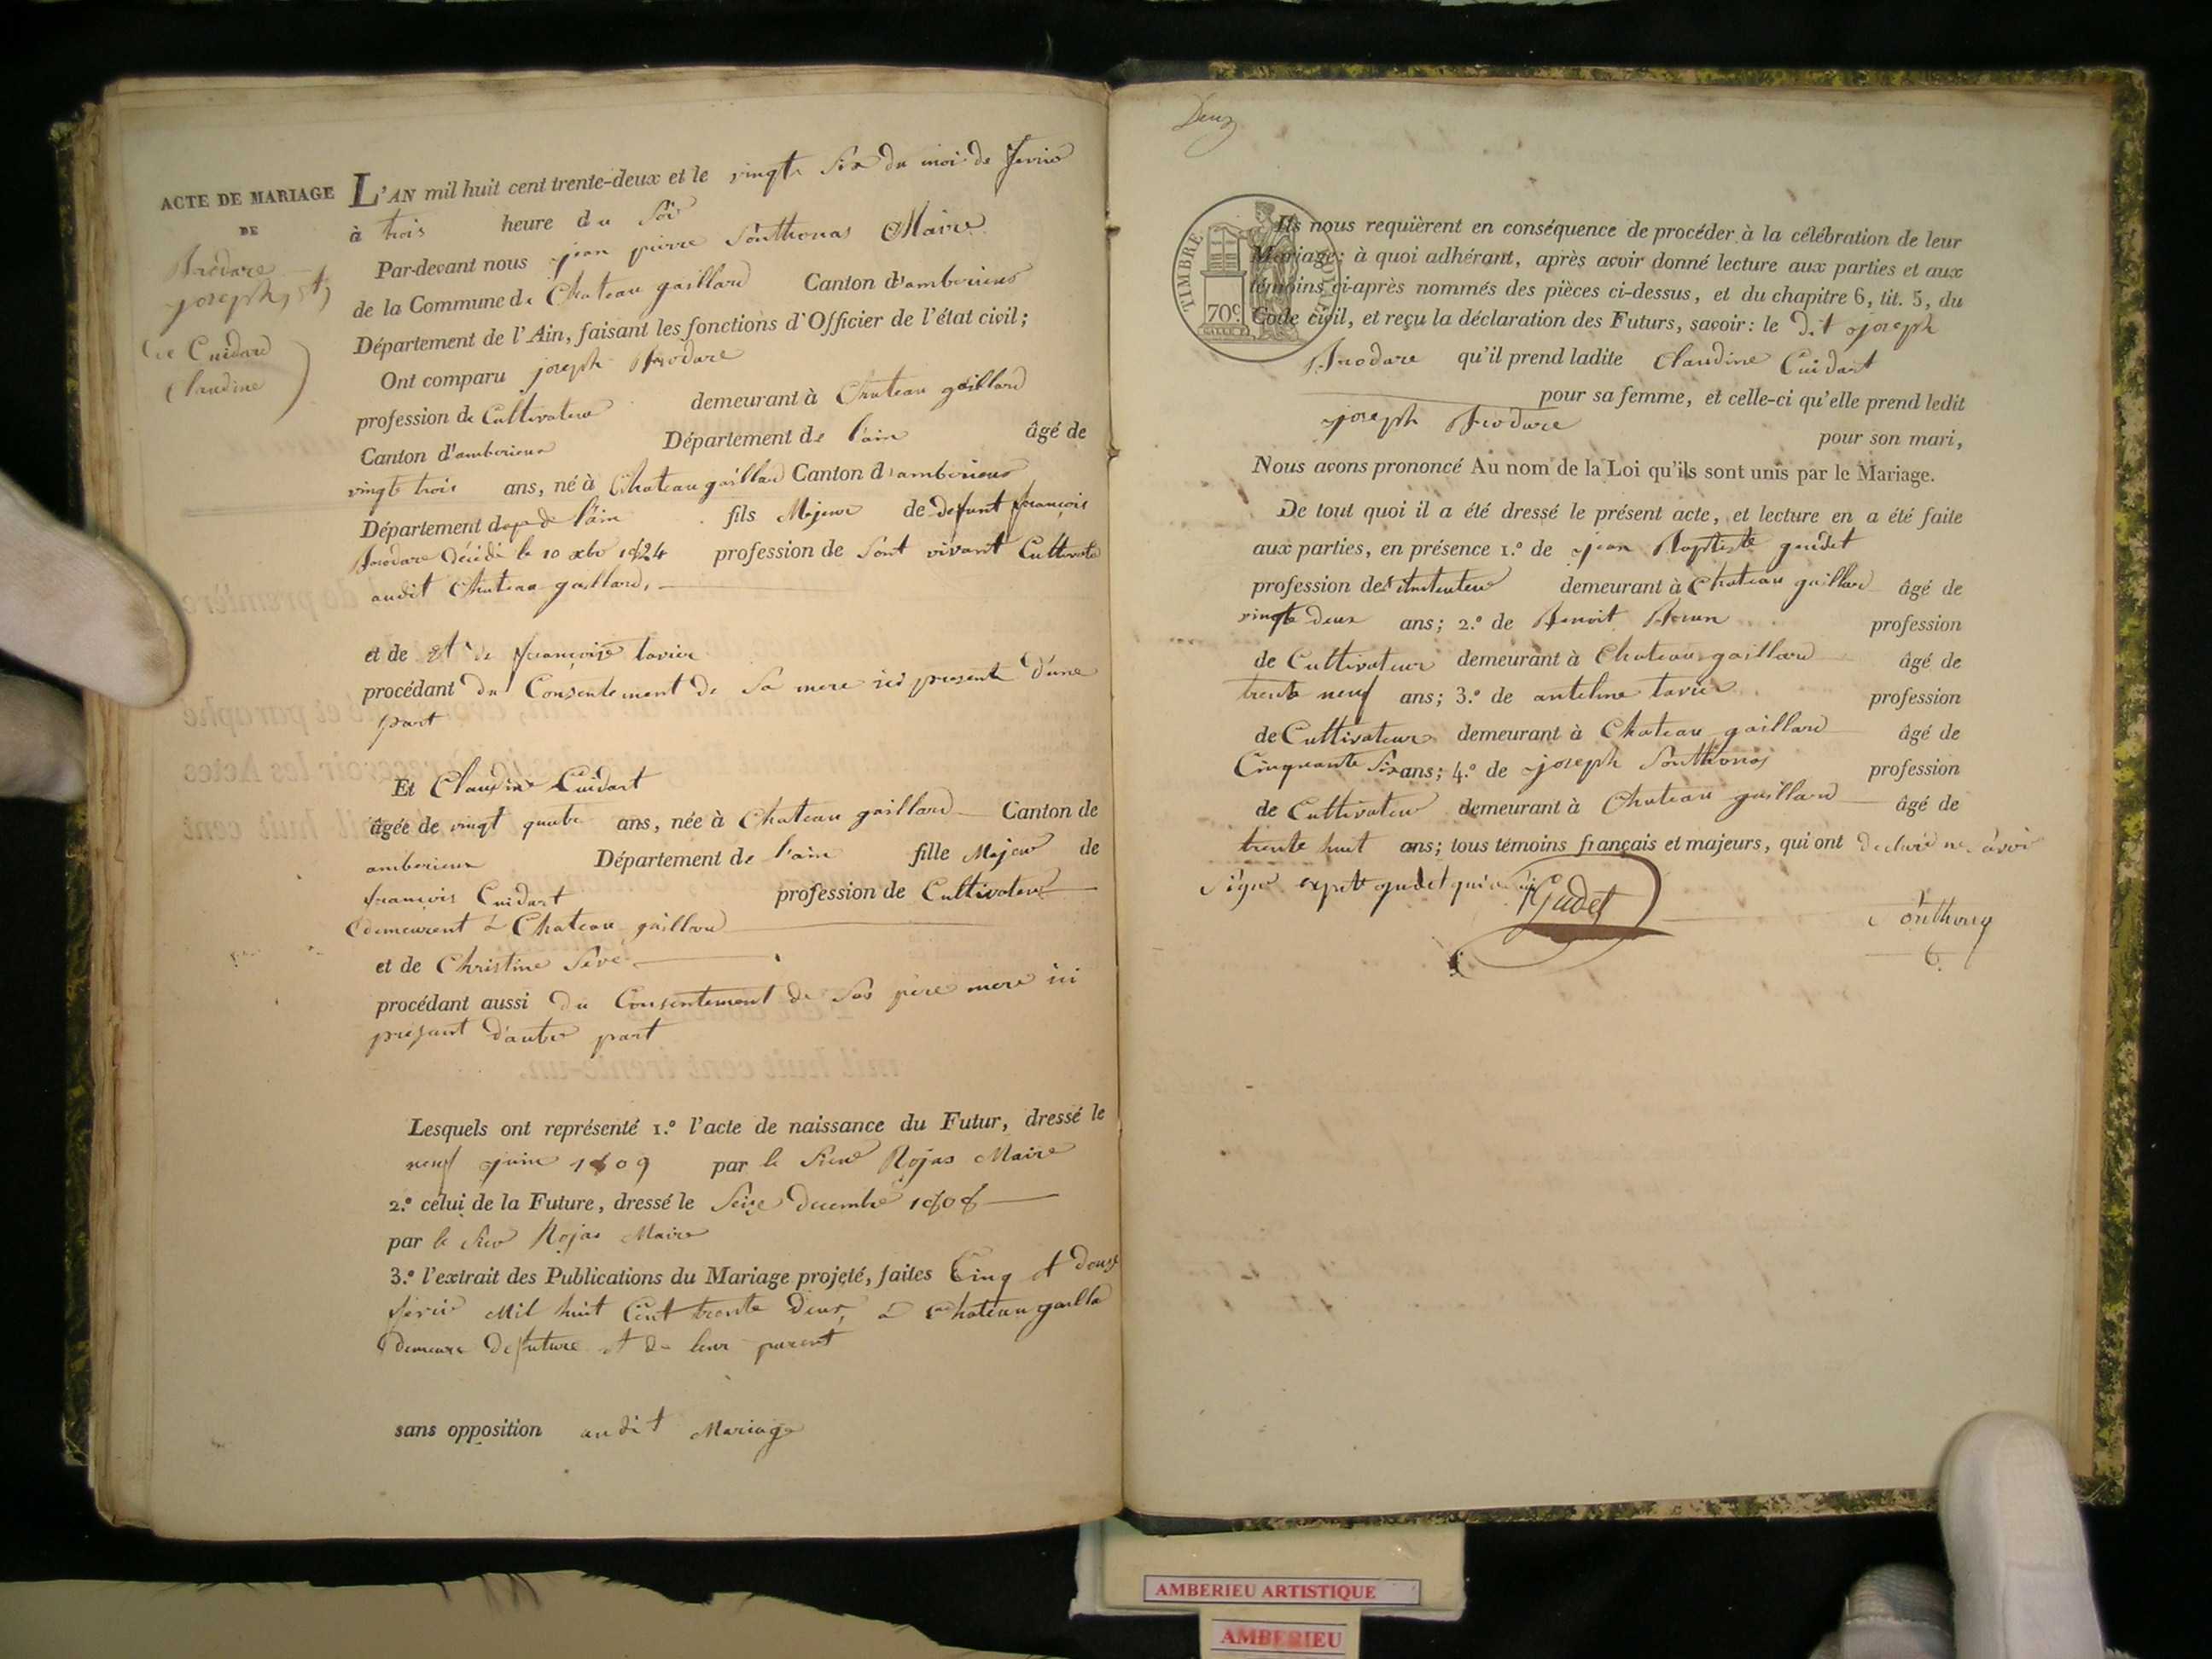 ACTE DE MARIAGE
DE
joseph, et
Claudine
L'AN mil huit cent trente-deux et le vingt six du moi de fevrier
à trois heure du soir
Par-devant nous jean pierre Sonthonas Maire
de la Commune de Chateau gaillard Canton d'amberieux
Département de l'Ain, faisant les fonctions d'Officier de l'état civil;
Ont comparu joseph Brodare
profession de Cultivateur demeurant à Chateau gaillard
Canton d'amberieux Département de l'ain âgé de
vingt trois ans, né à Chateau gaillard Canton d'amberieux
Département de l'ain fils Majeur de defunt françois
Brodare décédé le 10 xbre 1824 profession de Sont vivant Cultivateur
audit Chateau gaillard,
et de et de françoise tavier
procédant du Consentement de Sa mere ici presente d'une
part
Et Claudine Cuidart
âgée de vingt quatre ans, née à Chateau gaillard Canton de
amberieux Département de l'ain fille Majeur de
françois Cuidart profession de Cultivateur
demeurent à Chateau gaillard
et de Christine Seve
procédant aussi du Consentement de Ses pere mere ici
présant d'autre part
Lesquels ont représenté 1.º l'acte de naissance du Futur, dressé le
neuf juin 1809 par le Sieur Rojas Maire
2.º celui de la Future, dressé le Seize decembre 1808
par le Sieur Rojas Maire
3.º l'extrait des Publications du Mariage projeté, faites Cinq et douze
fevrier Mil huit Cent trente deux, à Chateau gailla
demeure de future et de leur parent
sans opposition audit Mariage
Deux
TIMBRE ROYAL
70c.
Ils nous requièrent en conséquence de procéder à la célébration de leur
Mariage; à quoi adhérant, après avoir donné lecture aux parties et aux
témoins ci-après nommés des pièces ci-dessus, et du chapitre 6, tit. 5, du
Code civil, et reçu la déclaration des Futurs, savoir: le dit joseph
Brodare qu'il prend ladite Claudine Cuidart
pour sa femme, et celle-ci qu'elle prend ledit
joseph Brodare pour son mari,
Nous avons prononcé Au nom de la Loi qu'ils sont unis par le Mariage.
De tout quoi il a été dressé le présent acte, et lecture en a été faite
aux parties, en présence 1.º de jean Baptiste gudet
profession de demeurant à Chateau gaillard âgé de
vingt deux ans; 2.º de Benoit Brun profession
de Cultivateur demeurant à Chateau gaillard âgé de
trente neuf ans; 3.º de antelme tavier profession
de Cultivateur demeurant à Chateau gaillard âgé de
Cinquante Six ans; 4.º de joseph Sonthonas profession
de Cultivateur demeurant à Chateau gaillard âgé de
trente huit ans; tous témoins français et majeurs, qui ont declaré ne savoir
Signer gudet
Gudet
Sonthonas
AMBERIEU ARTISTIQUE
AMBERIEU